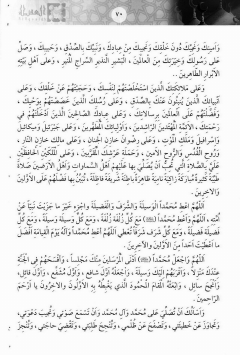 ٧٠
وَأَمِينِكَ وَنَجِيِّكَ دُونَ خَلْقِكَ وَنَجِيبِكَ مِنْ عِبَادِكَ، وَنَبِيِّكَ بِالصِّدْقِ، وَحَبِيبِكَ، وَصَلِّ
عَلَى رَسُولِكَ وَخِيَرَتِكَ مِنَ الْعَالَمِينَ، الْبَشِيرِ النَّذِيرِ السِّرَاجِ الْمُنِيرِ، وَعَلَى أَهْلِ بَيْتِهِ
الْأَبْرَارِ الطَّاهِرِينَ..
وَعَلَى مَلَائِكَتِكَ الَّذِينَ اسْتَخْلَصْتَهُمْ لِنَفْسِكَ، وَحَجَبْتَهُمْ عَنْ خَلْقِكَ، وَعَلَى
أَنْبِيَائِكَ الَّذِينَ يُنْبِئُونَ عَنْكَ بِالصِّدْقِ، وَعَلَى رُسُلِكَ الَّذِينَ خَصَصْتَهُمْ بِوَحْيِكَ،
وَفَضَّلْتَهُمْ عَلَى الْعَالَمِينَ بِرِسَالَاتِكَ، وَعَلَى عِبَادِكَ الصَّالِحِينَ الَّذِينَ أَدْخَلْتَهُمْ فِي
رَحْمَتِكَ، الْأَئِمَّةِ الْمُهْتَدِينَ الرَّاشِدِينَ، وَأَوْلِيَائِكَ الْمُطَهَّرِينَ، وَعَلَى جَبْرَئِيلَ وَمِيكَائِيلَ
وَإِسْرَافِيلَ وَمَلَكِ الْمَوْتِ، وَعَلَى رِضْوَانَ خَازِنِ الْجِنَانِ، وَعَلَى مَالِكٍ خَازِنِ النَّارِ،
وَرُوحِ الْقُدُسِ وَالرُّوحِ الْأَمِينِ، وَحَمَلَةِ عَرْشِكَ الْمُقَرَّبِينَ، وَعَلَى الْمَلَكَيْنِ الْحَافِظَيْنِ
عَلَيَّ، بِالصَّلَاةِ الَّتِي تُحِبُّ أَنْ يُصَلِّيَ بِهَا عَلَيْهِمْ أَهْلُ السَّمَاوَاتِ وَأَهْلُ الْأَرَضِينَ صَلَاةً
طَيِّبَةً كَثِيرَةً مُبَارَكَةً زَاكِيَةً نَامِيَةً ظَاهِرَةً بَاطِنَةً شَرِيفَةً فَاضِلَةً، تُبَيِّنُ بِهَا فَضْلَهُمْ عَلَى الْأَوَّلِينَ
وَالْآخِرِينَ.
اللَّهُمَّ أَعْطِ مُحَمَّداً الْوَسِيلَةَ وَالشَّرَفَ وَالْفَضِيلَةَ وَاجْزِهِ خَيْرَ مَا جَزَيْتَ نَبِيّاً عَنْ
أُمَّتِهِ، اللَّهُمَّ وَأَعْطِ مُحَمَّداً مَعَ كُلِّ زُلْفَةٍ زُلْفَةً، وَمَعَ كُلِّ وَسِيلَةٍ وَسِيلَةً، وَمَعَ كُلِّ
فَضِيلَةٍ فَضِيلَةً، وَمَعَ كُلِّ شَرَفٍ شَرَفاً تُعْطِي اللَّهُمَّ مُحَمَّداً وَآلَهُ يَوْمَ الْقِيَامَةِ أَفْضَلَ
مَا أَعْطَيْتَ أَحَداً مِنَ الْأَوَّلِينَ وَالْآخِرِينَ.
اللَّهُمَّ وَاجْعَلْ مُحَمَّداً أَدْنَى الْمُرْسَلِينَ مِنْكَ مَجْلِساً، وَأَفْسَحَهُمْ فِي الْجَنَّةِ
عِنْدَكَ مَنْزِلاً، وَأَقْرَبَهُمْ إِلَيْكَ وَسِيلَةً، وَاجْعَلْهُ أَوَّلَ شَافِعٍ، وَأَوَّلَ مُشَفَّعٍ، وَأَوَّلَ قَائِلٍ،
وَأَنْجَحَ سَائِلٍ، وَابْعَثْهُ الْمَقَامَ الْمَحْمُودَ الَّذِي يَغْبِطُهُ بِهِ الْأَوَّلُونَ وَالْآخِرُونَ يَا أَرْحَمَ
الرَّاحِمِينَ.
وَأَسْأَلُكَ أَنْ تُصَلِّيَ عَلَى مُحَمَّدٍ وَآلِ مُحَمَّدٍ وَأَنْ تَسْمَعَ صَوْتِي، وَتُجِيبَ دَعْوَتِي،
وَتَجَاوَزَ عَنْ خَطِيئَتِي، وَتَصْفَحَ عَنْ ظُلْمِي، وَتُنْجِحَ طَلِبَتِي، وَتَقْضِيَ حَاجَتِي، وَتُنْجِزَ